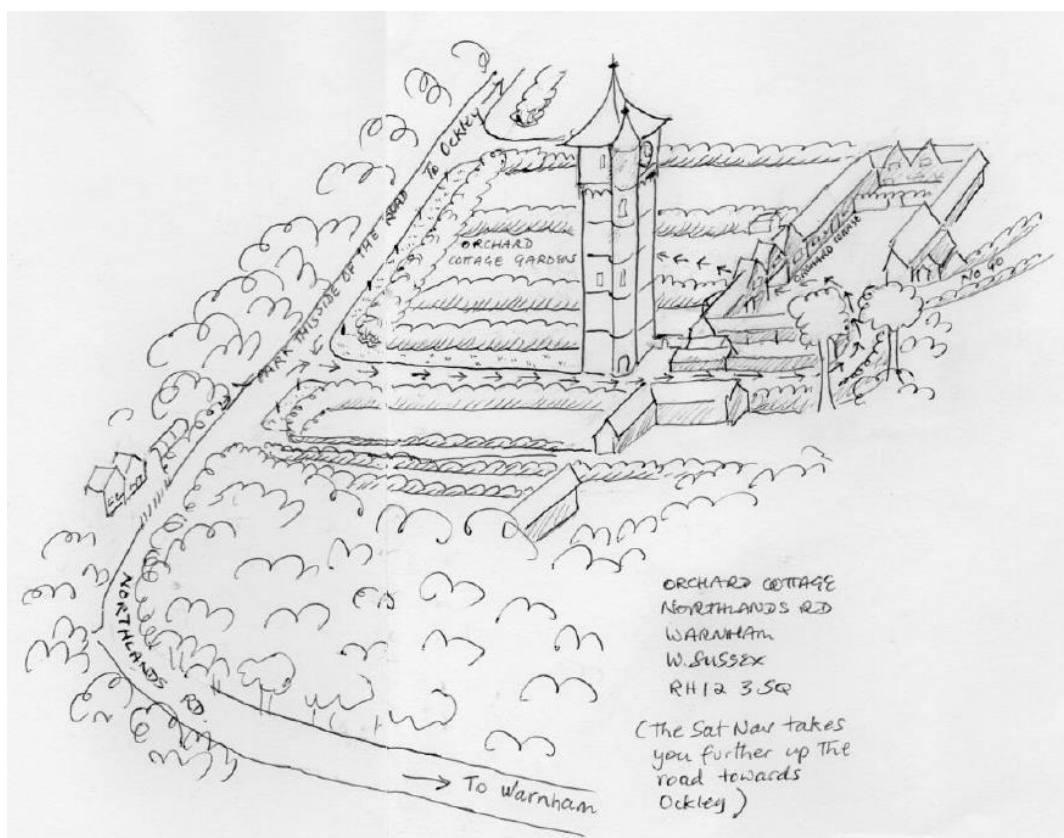 To Ockley
PARK THIS SIDE OF THE ROAD
ORCHARD
COTTAGE GARDENS
ORCHARD COTTAGE
NO GO
NORTHLANDS RD.
→ To Warnham
ORCHARD COTTAGE
NORTHLANDS RD
WARNHAM
W. SUSSEX
RH12 3SQ
(The Sat Nav takes
you further up the
road towards
Ockley)